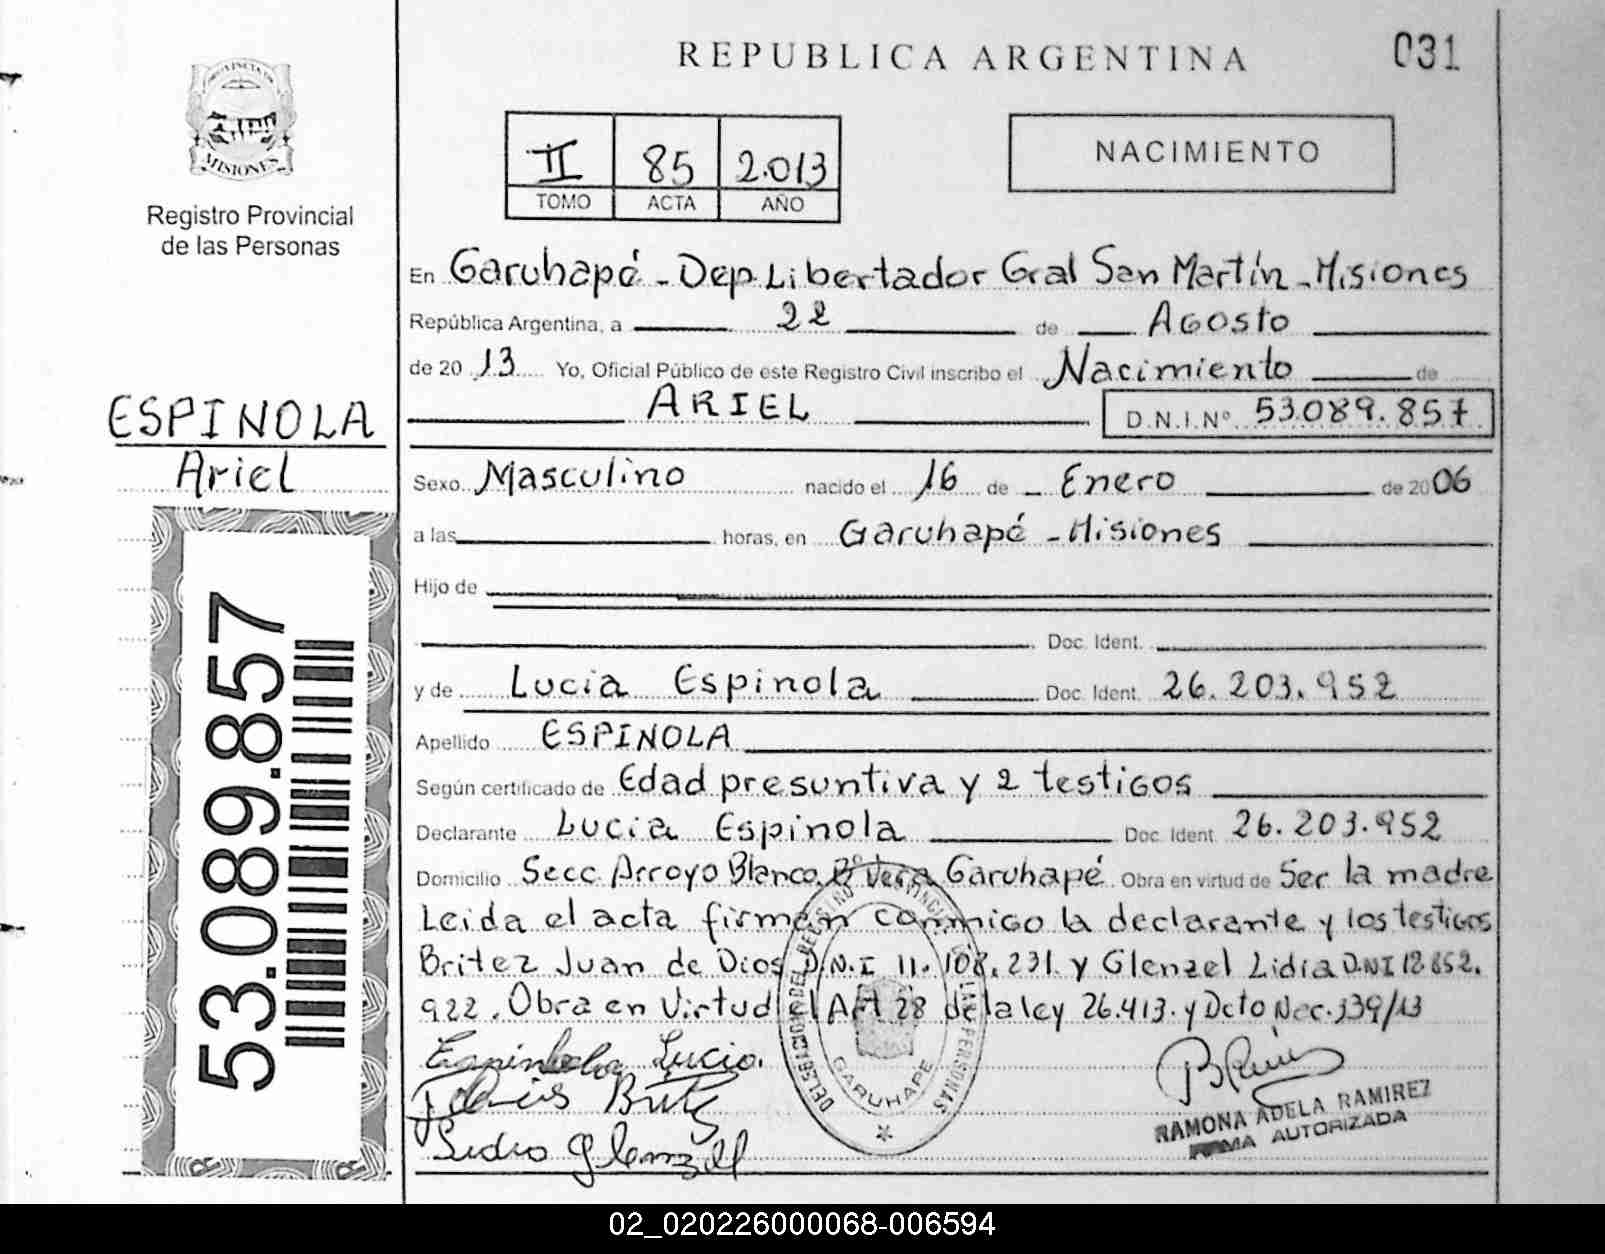 REPUBLICA ARGENTINA
031
PROVINCIA DE
MISIONES
Registro Provincial
de las Personas
II 85 2.013
TOMO ACTA AÑO
NACIMIENTO
En Garuhapé - Dep. Libertador Gral San Martín - Misiones
República Argentina, a 22 de Agosto
de 20 13 Yo, Oficial Público de este Registro Civil inscribo el Nacimiento de
ARIEL D.N.I. Nº 53.089.857
ESPINOLA
Ariel
Sexo Masculino nacido el 16 de Enero de 2006
a las horas, en Garuhapé - Misiones
Hijo de
Doc. Ident.
y de Lucia Espinola Doc. Ident. 26.203.952
Apellido ESPINOLA
Según certificado de Edad presuntiva y 2 testigos
Declarante Lucia Espinola Doc. Ident. 26.203.952
Domicilio Secc. Arroyo Blanco, Bº Vera Garuhapé Obra en virtud de Ser la madre
Leida el acta firman conmigo la declarante y los testigos
Britez Juan de Dios D.N.I 11.108.231 y Glenzel Lidia D.N.I 12.652.
922. Obra en Virtud el Art 28 de la ley 26.413. y Dcto Nec. 339/13
53.089.857
Lucia
GARUHAPE
RAMONA ADELA RAMIREZ
FIRMA AUTORIZADA
02_020226000068-006594